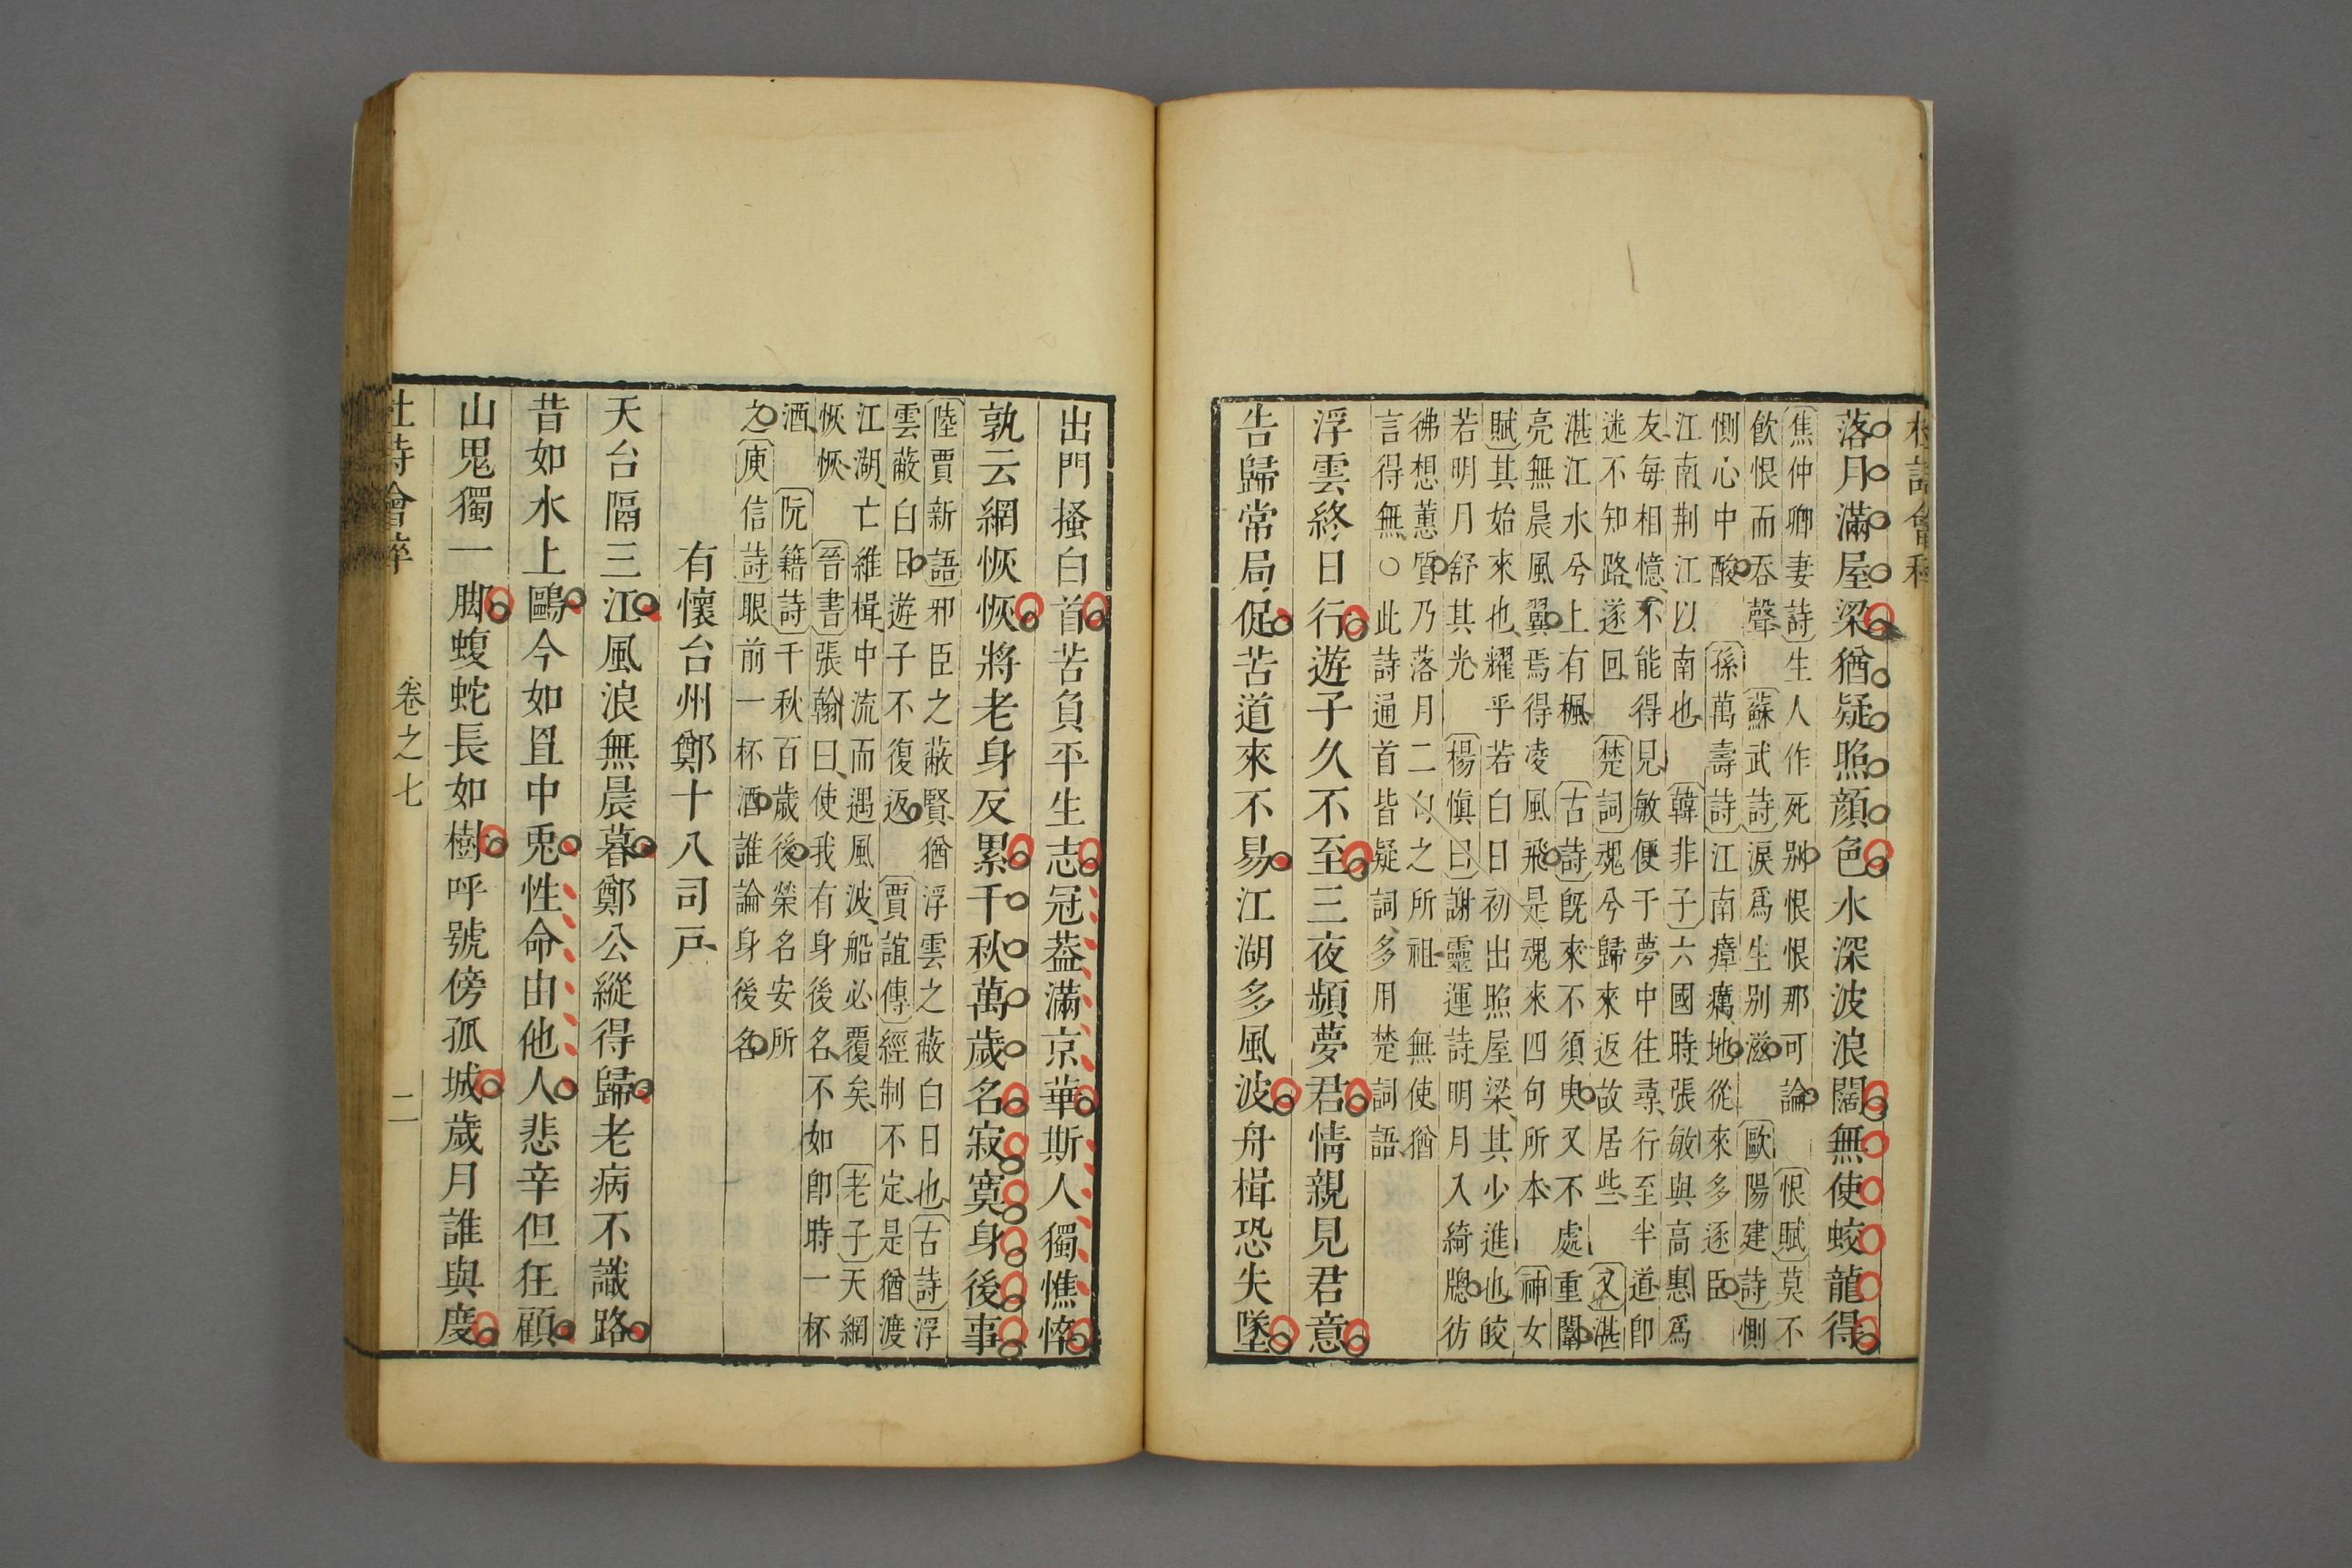 杜詩會稡
落月滿屋梁猶疑照顔色水深波浪闊無使蛟龍得
焦仲卿妻詩生人作死别恨恨那可論 恨賦莫不
飲恨而吞聲 蘇武詩淚爲生别滋 歐陽建詩惻
惻心中酸 孫萬壽詩江南瘴癘地從來多逐臣
江南荆江以南也 韓非子六國時張敏與高惠爲
友毎相憶不能得見敏便于夢中往尋行至半道卽
迷不知路遂回 楚詞魂兮歸來返故居些 又湛
湛江水兮上有楓 古詩旣來不須臾又不處重闈
亮無晨風翼焉得凌風飛是魂來四句所本 神女
賦其始來也耀乎若白日初出照屋梁其少進也皎
若明月舒其光 楊愼曰謝靈運詩明月入綺牕彷
彿想蕙質乃落月二句之所祖 無使猶
言得無○此詩通首皆疑詞多用楚詞語
浮雲終日行遊子久不至三夜頻夢君情親見君意
告歸常局促苦道來不易江湖多風波舟楫恐失墜
出門搔白首苦負平生志冠葢滿京華斯人獨憔悴
孰云網恢恢將老身反累千秋萬歲名寂寞身後事
陸賈新語邪臣之蔽賢猶浮雲之蔽白日也古詩浮
雲蔽白日遊子不復返 賈誼傳經制不定是猶渡
江湖亡維楫中流而遇風波船必覆矣 老子天網
恢恢 晉書張翰曰使我有身後名不如卽時一杯
酒 阮籍詩千秋百歲後榮名安所
之庾信詩眼前一杯酒誰論身後名
有懷台州鄭十八司戸
天台隔三江風浪無晨暮鄭公縱得歸老病不識路
昔如水上鷗今如罝中兎性命由他人悲辛但狂顧
山鬼獨一脚蝮蛇長如樹呼號傍孤城歲月誰與度
杜詩會稡 卷之七 二